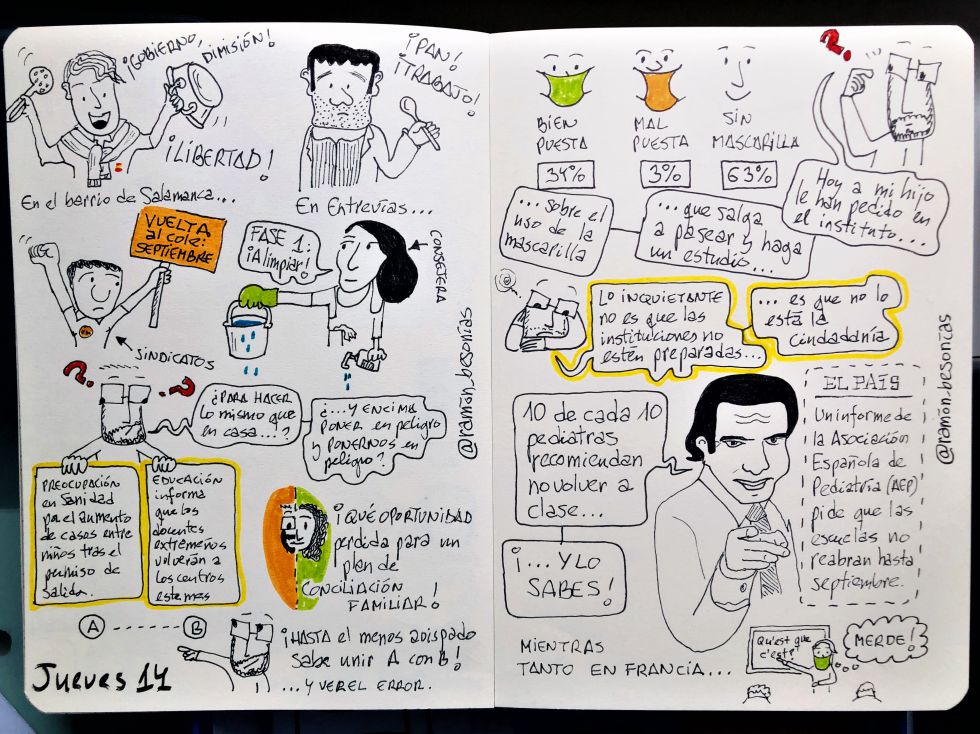 ¡GOBIERNO,
DIMISIÓN!
¡LIBERTAD!
En el barrio de Salamanca...
¡PAN!
¡TRABAJO!
En Entrevías...
VUELTA
al cole:
SEPTIEMBRE
SINDICATOS
FASE 1:
¡A limpiar!
CONSEJERA
@ramón_besonías
¿PARA HACER
lo mismo que
en casa...?
¿...Y ENCIMA
PONER EN peligro
y PONERNOS EN
peligro?
PREOCUPACIÓN
en Sanidad
por el aumento
de casos entre
niños tras el
permiso de
salida.
EDUCACIÓN
informa
que los
docentes
extremeños
volverán a
los centros
este mes
¡QUÉ OPORTUNIDAD
perdida para un
plan de
CONCILIACIÓN
FAMILIAR!
A ---- B
¡HASTA el menos avispado
sabe unir A con B!
...Y VER EL ERROR.
Jueves 14
BIEN
PUESTA
34%
MAL
PUESTA
3%
SIN
MASCARILLA
63%
Hoy a mi hijo
le han pedido en
el instituto...
...que salga
a pasear y haga
un estudio...
...sobre el
uso de la
mascarilla
Lo INQUIETANTE
no es que las
instituciones no
estén preparadas...
...es que no lo
está la
ciudadanía
10 de cada 10
pediatras
recomiendan
no volver a
clase...
¡...Y LO
SABES!
EL PAÍS
Un informe de
la Asociación
Española de
Pediatría (AEP)
pide que las
escuelas no
reabran hasta
septiembre.
@ramón_besonías
MIENTRAS
TANTO EN FRANCIA...
Qu'est que
c'est?
MERDE!